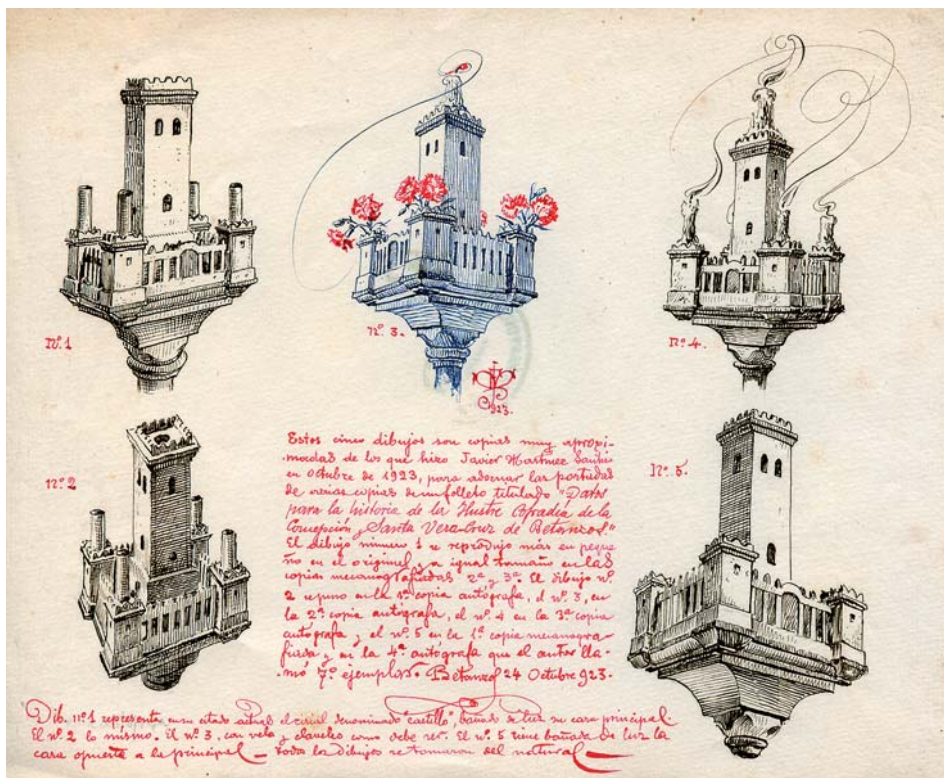 Nº 1
Nº 3.
Nº 4.
923.
nº 2
Nº 5.
Estos cinco dibujos son copias muy aproxi-
.madas de los que hizo Javier Martinez Santiso
en Octubre de 1923, para adornar las portadas
de varias copias de un folleto titulado "Datos
para la historia de la Ilustre Cofradía de la
Concepción y Santa Vera-Cruz de Betanzos"
El dibujo número 1 se reprodujo más en peque
ño en el original y a igual tamaño en las
copias mecanografiadas 2ª y 3ª. El dibujo nº.
2 se puso en la 1ª copia autógrafa, el nº. 3, en
la 2ª copia autógrafa, el nº 4 en la 3ª copia
autógrafa y el nº. 5 en la 1ª copia mecanogra
fiada y en la 4ª autógrafa que el autor lla-
.mó 7º ejemplar. Betanzos 24 Octubre 923.
Dib. nº 1 representa en su estado actual el cirial denominado "castillo", bañado de luz su cara principal.
El nº 2 lo mismo. El nº 3, con vela y claveles como debe ser. El nº 5 tiene bañada de luz la
cara opuesta a la principal — Todos los dibujos se tomaron del natural —